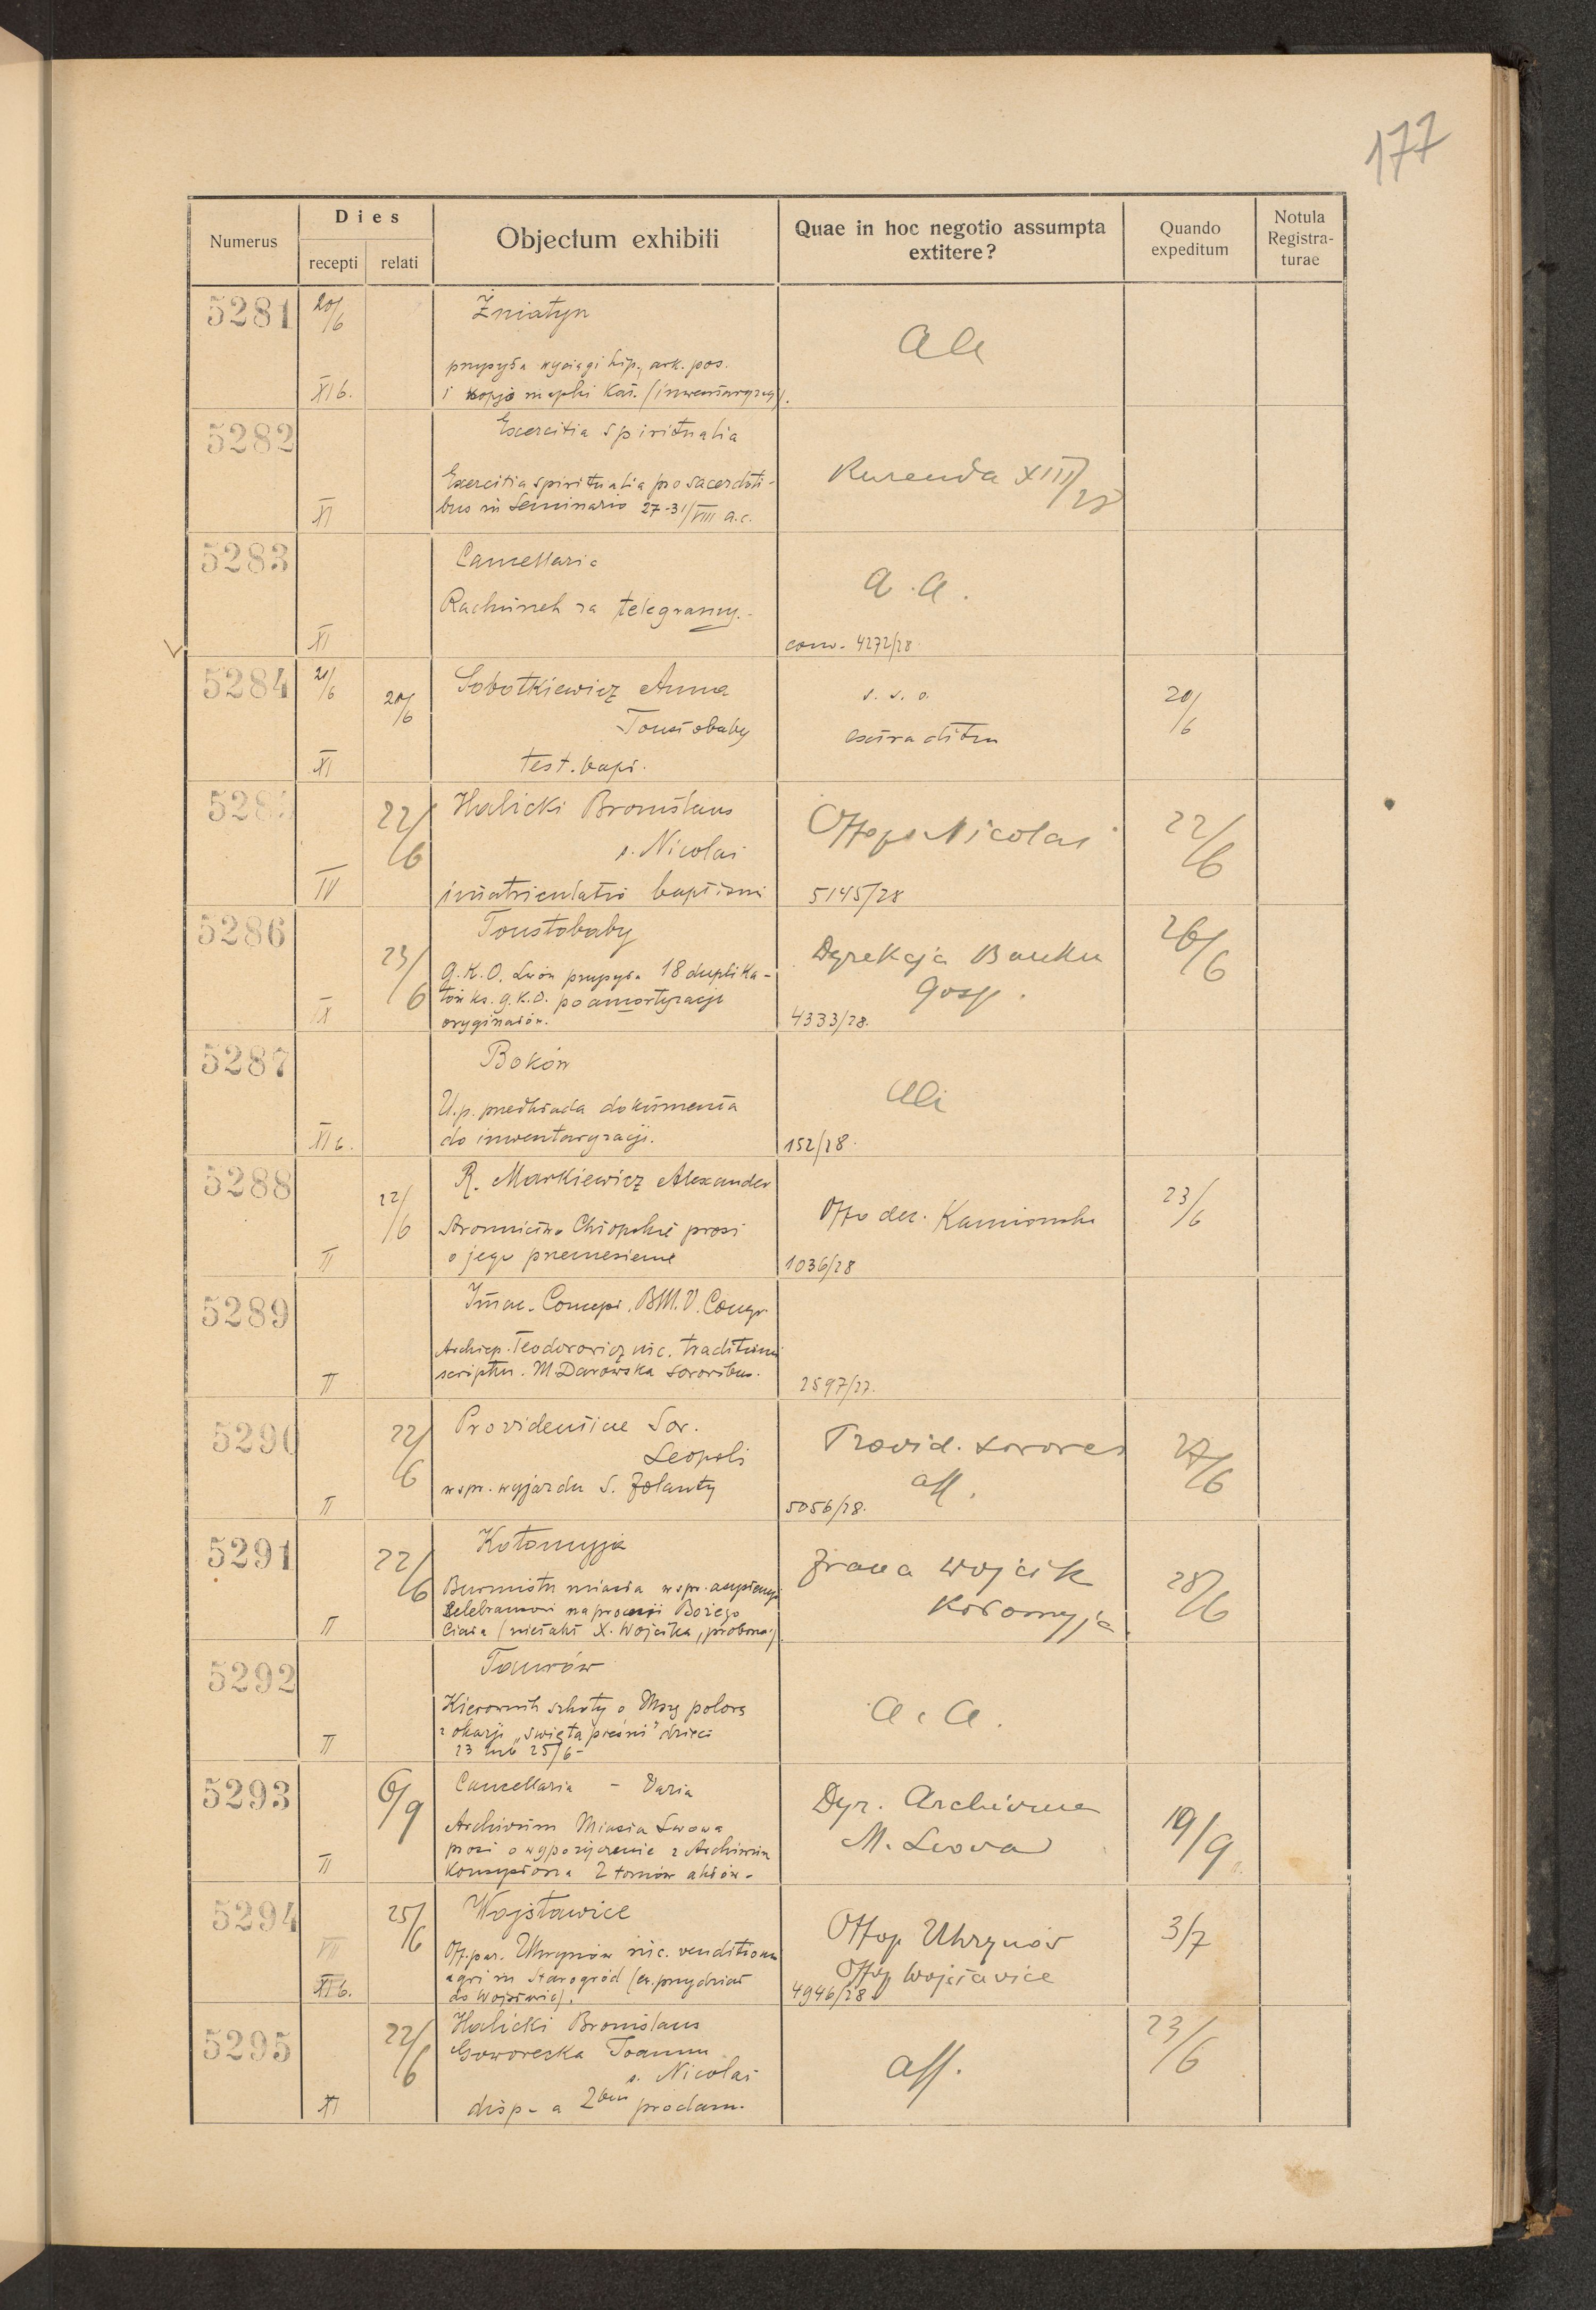 177
Numerus
Dies
recepti
relati
Objectum exhibiti
Quae in hoc negotio assumpta
extitere?
Quando
expeditum
Notula
Registra-
turae
5281
20/6
XI b.
Żniatyn
przysyła wyciągi hip., ark. pos.
i kopję mapki kat. (inwentaryzacj).
5282
XI
Exercitia spiritualia
Exercitia spiritualia pro sacerdoti-
bus in Seminario 27-31/VIII a.c.
Kurenda XIII/28
5283
XI
Cancellaria
Rachunek za telegramy.-
a.a.
conv. 4272/28
5284
20/6
20/6
XI
Sobotkiewicz Anna
Toustobaby
test. bapt.
s. s. o.
extraditum
20/6
528
22/6
IV
Halicki Bronislaus
s. Nicolai
imatriculatio baptismi
Offo ps Nicolai
5145/28
22/6
5286
23/6
IX
Toustobaby
G.K.O. Lwów przysyła 18 duplika-
tów ks. G.K.O. po amortyzacji
oryginałów.
Dyrekcja Banku
Gosp.
4333/28.
26/6
5287
XI b.
Boków
U.p. przedkłada dokumenta
do inwentaryzacji.
152/28.
5288
22/6
II
R. Markiewicz Alexander
Stronnictwo Chłopskie prosi
o jego przeniesienie
Offo dec. Kamionka
1036/28
23/6
5289
II
Imac. Concept. B.M.V. Congr.
Archiep. Teodorowicz nic. traditionem
scriptu. M. Darowska sororibus.
2597/27.
5290
22/6
II
Providentiae Sor.
Leopoli
w spr. wyjazdu S. Jolanty
Provid. sorores
aff.
5056/28.
27/6
5291
22/6
II
Kołomyja
Burmistrz miasta w spr. asystencji
celebransowi na procesji Bożego
Ciała (nietakt X. Wójcika, proboszcz)
Wojcik
Kołomyja
28/6
5292
II
Taurów
Kierownik szkoły o Mszę polową
z okazji „święta pieśni” dzieci
23 lub 25/6-
a.a.
5293
6/9
II
Cancellaria - Varia
Archiwum Miasta Lwowa
prosi o wypożyczenie z Archiwum
Konsystorza 2 tomów aktów.-
Dyr. Archiwum
M. Lwowa
19/9
5294
25/6
VII
XI b.
Wojsławice
Off. par. Uhrynów nic. venditionem
agri in Starogród (ex. przydział
do Wojsławic).
Offop Uhrynów
Offop Wojsławice
4946/28
3/7
5295
22/6
XI
Halicki Bronislaus
Goworecka Joanna
s. Nicolai
disp. a 2bus proclam.
aff.
23/6